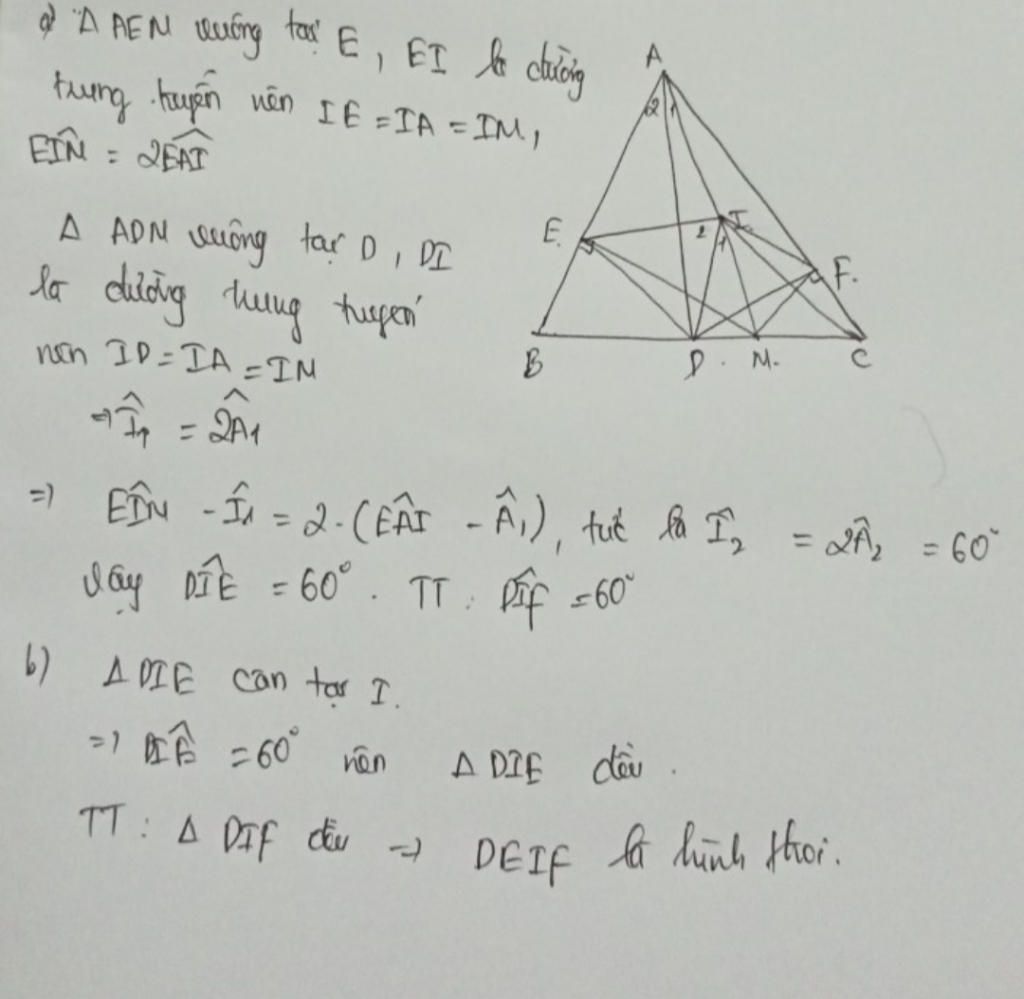 a) Δ AEM vuông tại E, EI là đường
trung tuyến nên IE = IA = IM,
EÎM = 2EÂI
Δ ADM vuông tại D, DI
là đường trung tuyến
nên ID = IA = IM
=> Î₁ = 2Â₁
=> EÎM - Î₁ = 2.(EÂI - Â₁), tức là Î₂ = 2Â₂ = 60°
Vậy DÎE = 60°. TT: DÎF = 60°
b) Δ DIE cân tại I.
=> DÎE = 60° nên Δ DIE đều.
TT: Δ DIF đều => DEIF là hình thoi.
A
2 1
E.
I.
2
1
F.
B
D.
M.
C